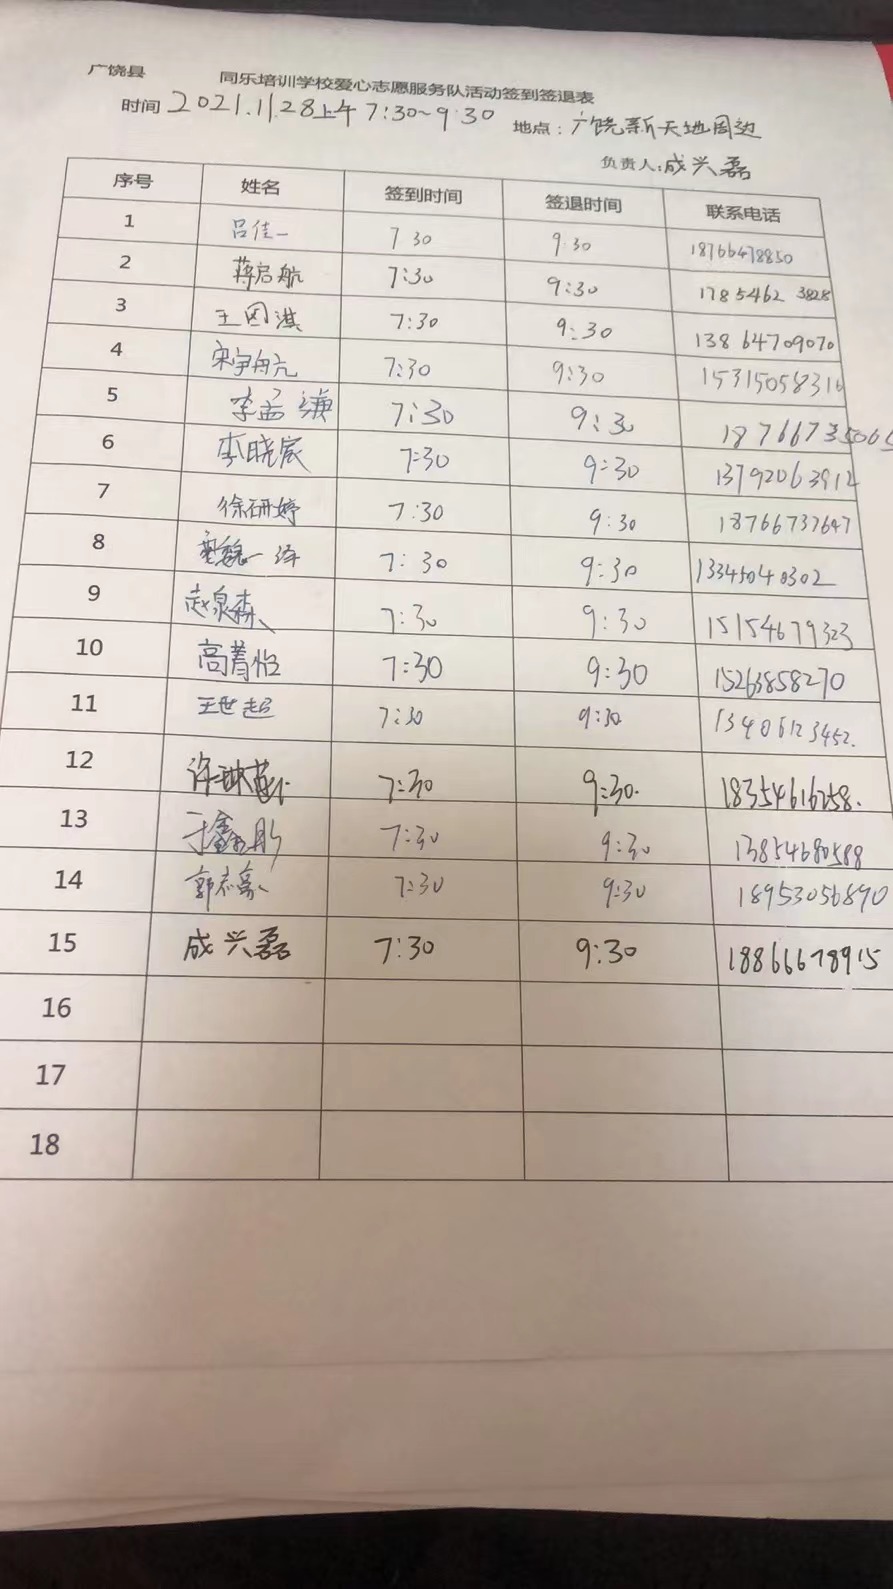 广饶县 同乐培训学校爱心志愿服务队活动签到签退表
时间 2021.11.28上午 7:30~9:30 地点：广饶新天地周边
负责人:成兴磊
序号 姓名 签到时间 签退时间 联系电话
1 吕佳一 7 30 9:30 18766478850
2 蒋启航 7:30 9:30 1785462 3828
3 王因淇 7:30 9:30 13864709070
4 7:30 9:30 15315058316
5 李孟 7:30 9:30
6 李晓宸 7:30 9:30 13792063912
7 徐研婷 7:30 9:30 18766737647
8 7:30 9:30 13345040302
9 赵泉森 7:30 9:30 15154679323
10 高着怡 7:30 9:30 15263858270
11 王世超 7:30 9:30 13406123452.
12 7:30 9:30. 18354616258.
13 7:30 9:30 13854680588
14 郭志豪 7:30 9:30 18953056890
15 成兴磊 7:30 9:30 18866678915
16
17
18